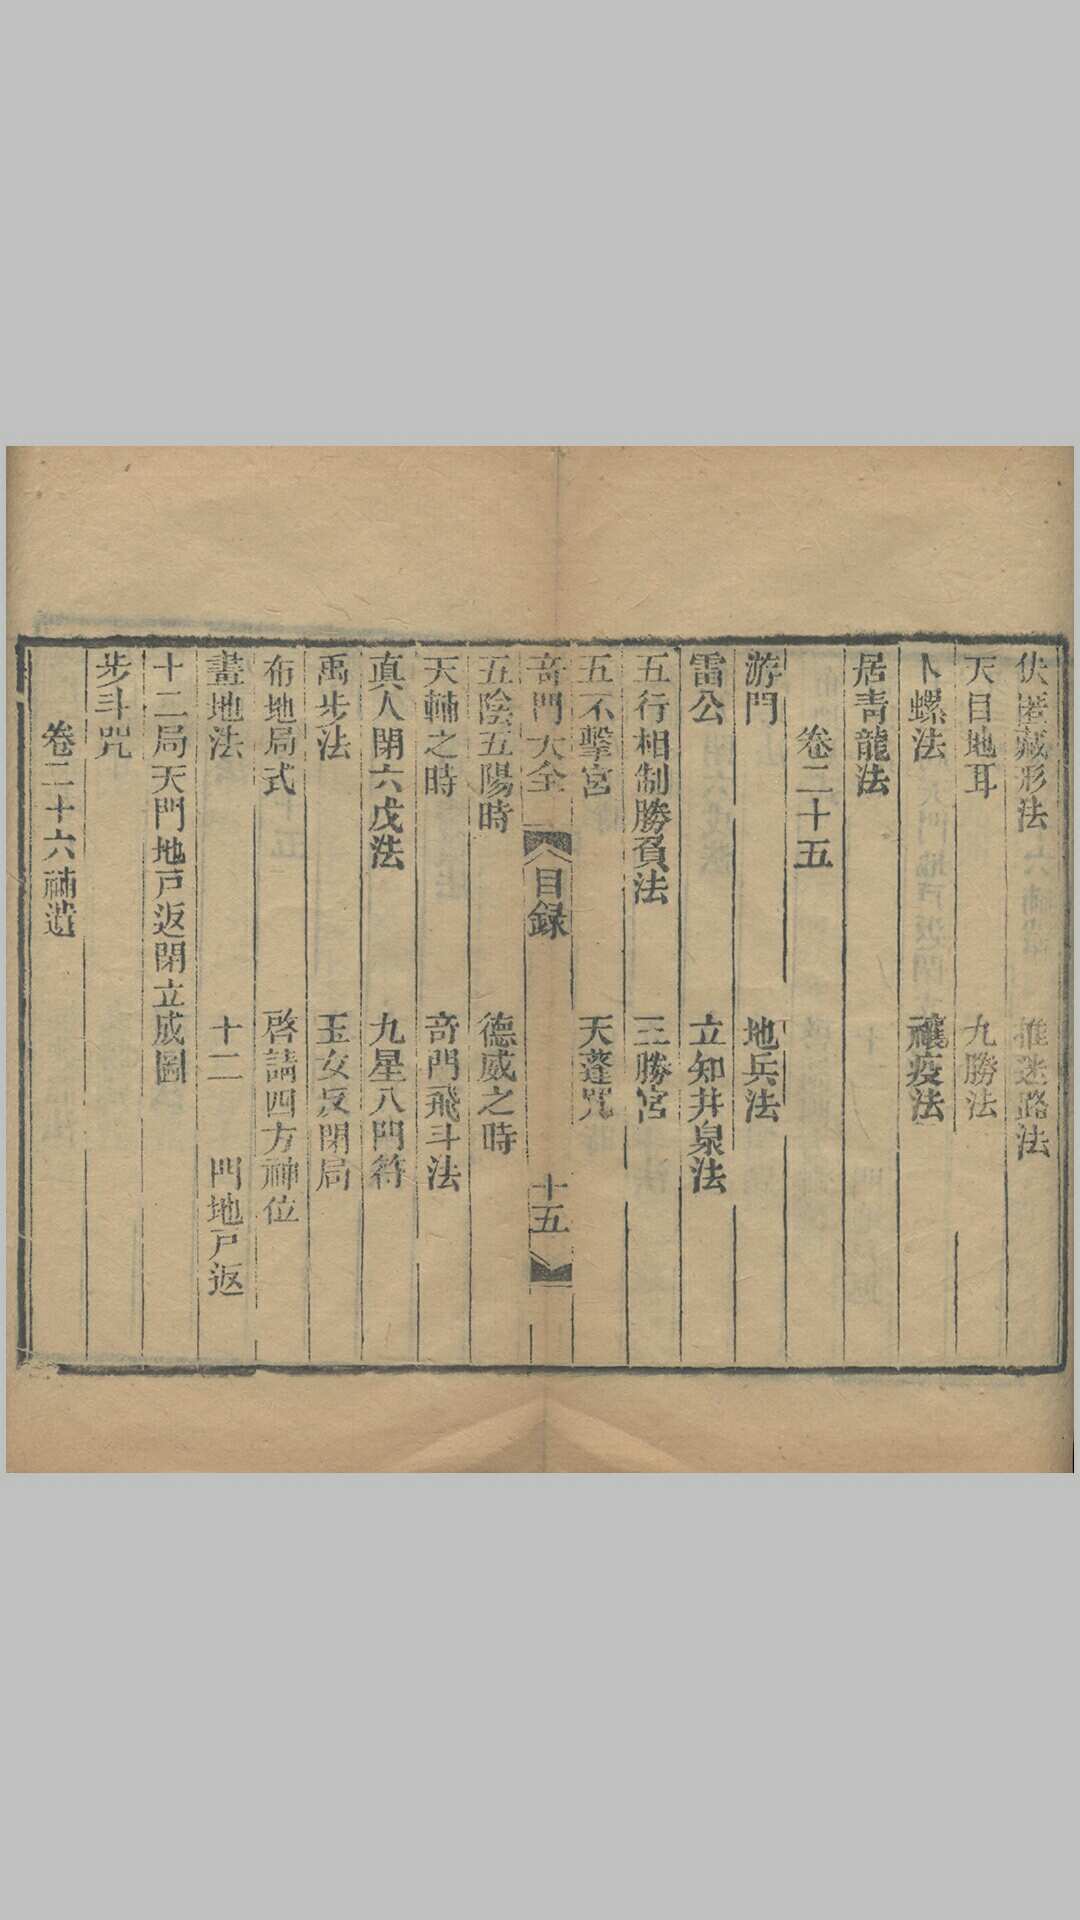 伏匿藏形法　推迷路法
天目地耳　九勝法
卜螺法　禳疫法
居青龍法
卷二十五
游門　地兵法
雷公　立知井泉法
五行相制勝負法　三勝宮
五不擊宮　天蓬咒
奇門大全　目録　十五
五陰五陽時　德威之時
天輔之時　奇門飛斗法
真人閉六戊法　九星八門符
禹步法　玉女反閉局
布地局式　啓請四方神位
畫地法　十二　門地戸返
十二局天門地戸返閉立成圖
步斗咒
卷二十六補遺